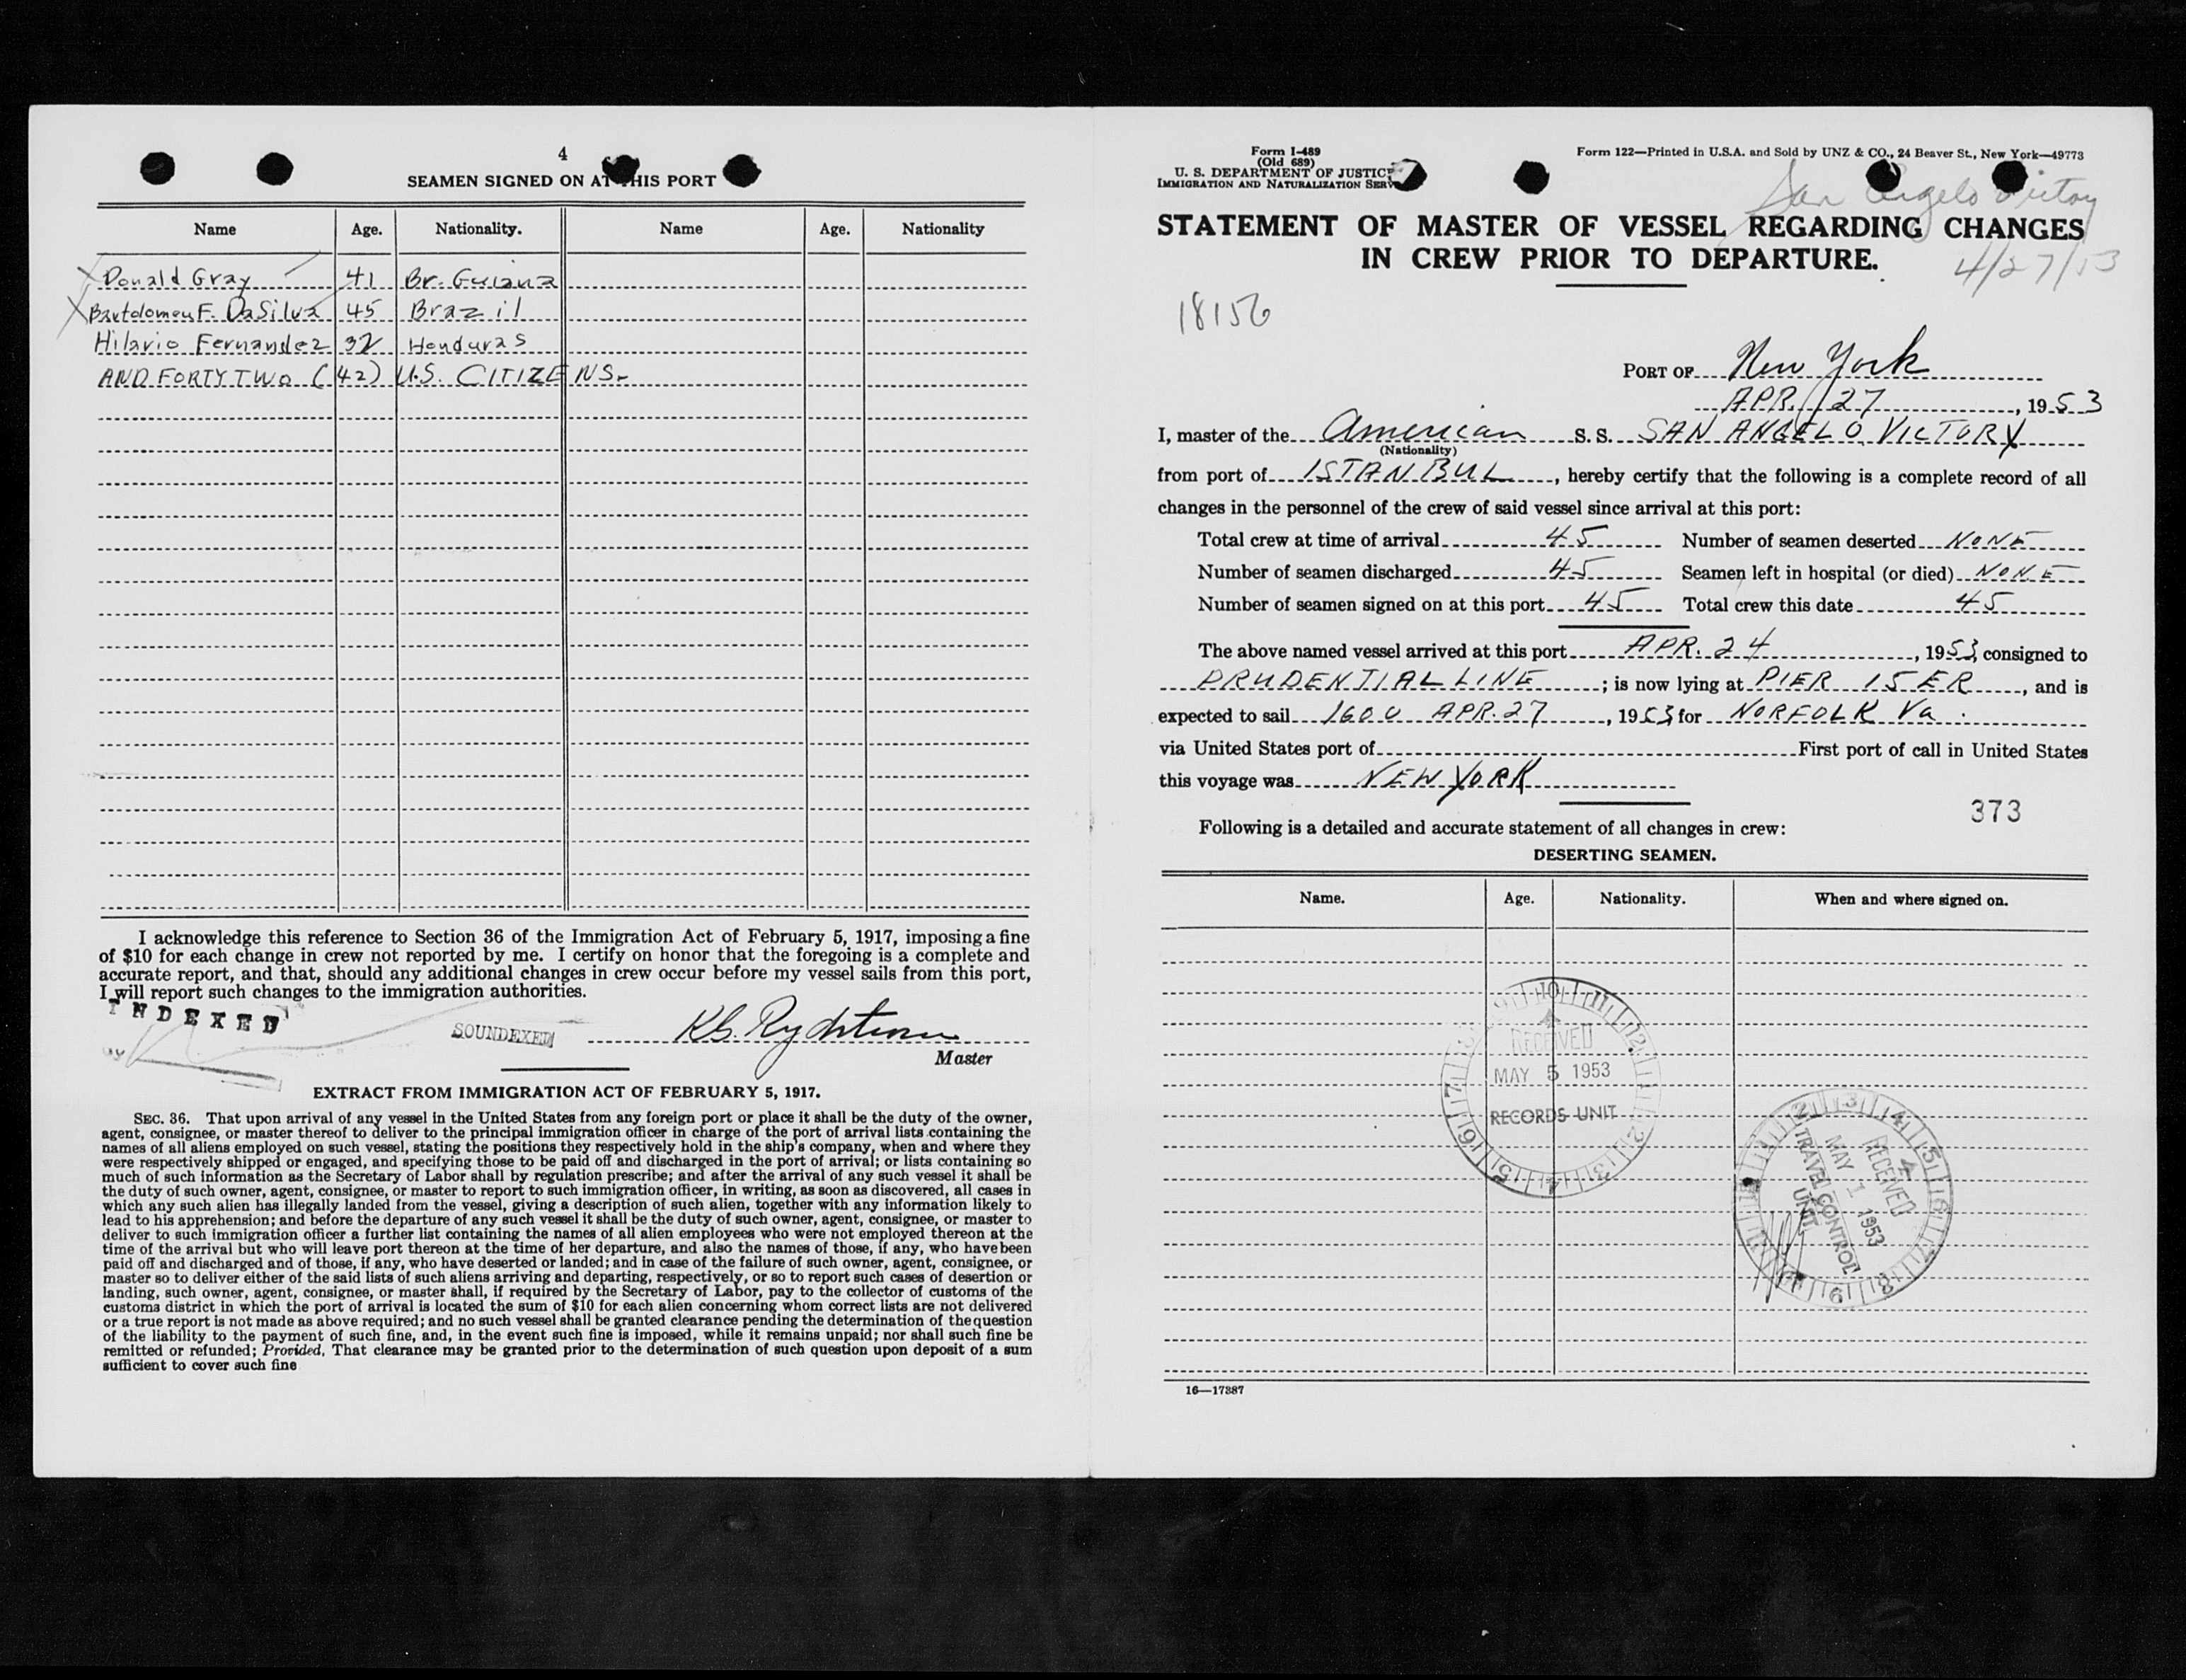 4
SEAMEN SIGNED ON AT THIS PORT
Name Age. Nationality. Name Age. Nationality
Donald Gray 41 Br. Guiana
Bartolomeu F. DaSilva 45 Brazil
Hilario Fernandez 32 Honduras
AND FORTY TWO (42) U.S. CITIZENS-
I acknowledge this reference to Section 36 of the Immigration Act of February 5, 1917, imposing a fine
of $10 for each change in crew not reported by me. I certify on honor that the foregoing is a complete and
accurate report, and that, should any additional changes in crew occur before my vessel sails from this port,
I will report such changes to the immigration authorities.
INDEXED
SOUNDEXED
Master
EXTRACT FROM IMMIGRATION ACT OF FEBRUARY 5, 1917.
SEC. 36. That upon arrival of any vessel in the United States from any foreign port or place it shall be the duty of the owner,
agent, consignee, or master thereof to deliver to the principal immigration officer in charge of the port of arrival lists containing the
names of all aliens employed on such vessel, stating the positions they respectively hold in the ship's company, when and where they
were respectively shipped or engaged, and specifying those to be paid off and discharged in the port of arrival; or lists containing so
much of such information as the Secretary of Labor shall by regulation prescribe; and after the arrival of any such vessel it shall be
the duty of such owner, agent, consignee, or master to report to such immigration officer, in writing, as soon as discovered, all cases in
which any such alien has illegally landed from the vessel, giving a description of such alien, together with any information likely to
lead to his apprehension; and before the departure of any such vessel it shall be the duty of such owner, agent, consignee, or master to
deliver to such immigration officer a further list containing the names of all alien employees who were not employed thereon at the
time of the arrival but who will leave port thereon at the time of her departure, and also the names of those, if any, who have been
paid off and discharged and of those, if any, who have deserted or landed; and in case of the failure of such owner, agent, consignee, or
master so to deliver either of the said lists of such aliens arriving and departing, respectively, or so to report such cases of desertion or
landing, such owner, agent, consignee, or master shall, if required by the Secretary of Labor, pay to the collector of customs of the
customs district in which the port of arrival is located the sum of $10 for each alien concerning whom correct lists are not delivered
or a true report is not made as above required; and no such vessel shall be granted clearance pending the determination of the question
of the liability to the payment of such fine, and, in the event such fine is imposed, while it remains unpaid; nor shall such fine be
remitted or refunded; Provided, That clearance may be granted prior to the determination of such question upon deposit of a sum
sufficient to cover such fine
Form I-489
(Old 689)
U. S. DEPARTMENT OF JUSTICE
IMMIGRATION AND NATURALIZATION SERV
Form 122—Printed in U.S.A. and Sold by UNZ & CO., 24 Beaver St., New York—49773
San Angelo Victory
STATEMENT OF MASTER OF VESSEL REGARDING CHANGES
IN CREW PRIOR TO DEPARTURE.
4/27/53
18156
PORT OF New York
APR. 27, 1953
I, master of the American S. S. SAN ANGELO VICTORY
(Nationality)
from port of ISTANBUL, hereby certify that the following is a complete record of all
changes in the personnel of the crew of said vessel since arrival at this port:
Total crew at time of arrival 45 Number of seamen deserted NONE
Number of seamen discharged 45 Seamen left in hospital (or died) NONE
Number of seamen signed on at this port 45 Total crew this date 45
The above named vessel arrived at this port APR. 24, 1953, consigned to
PRUDENTIAL LINE; is now lying at PIER 15 ER, and is
expected to sail 1600 APR. 27, 1953 for NORFOLK Va.
via United States port of First port of call in United States
this voyage was NEW YORK
373
Following is a detailed and accurate statement of all changes in crew:
DESERTING SEAMEN.
Name. Age. Nationality. When and where signed on.
RECEIVED
MAY 5 1953
RECORDS UNIT
RECEIVED
MAY 1 1953
TRAVEL CONTROL
UNIT
16—17387